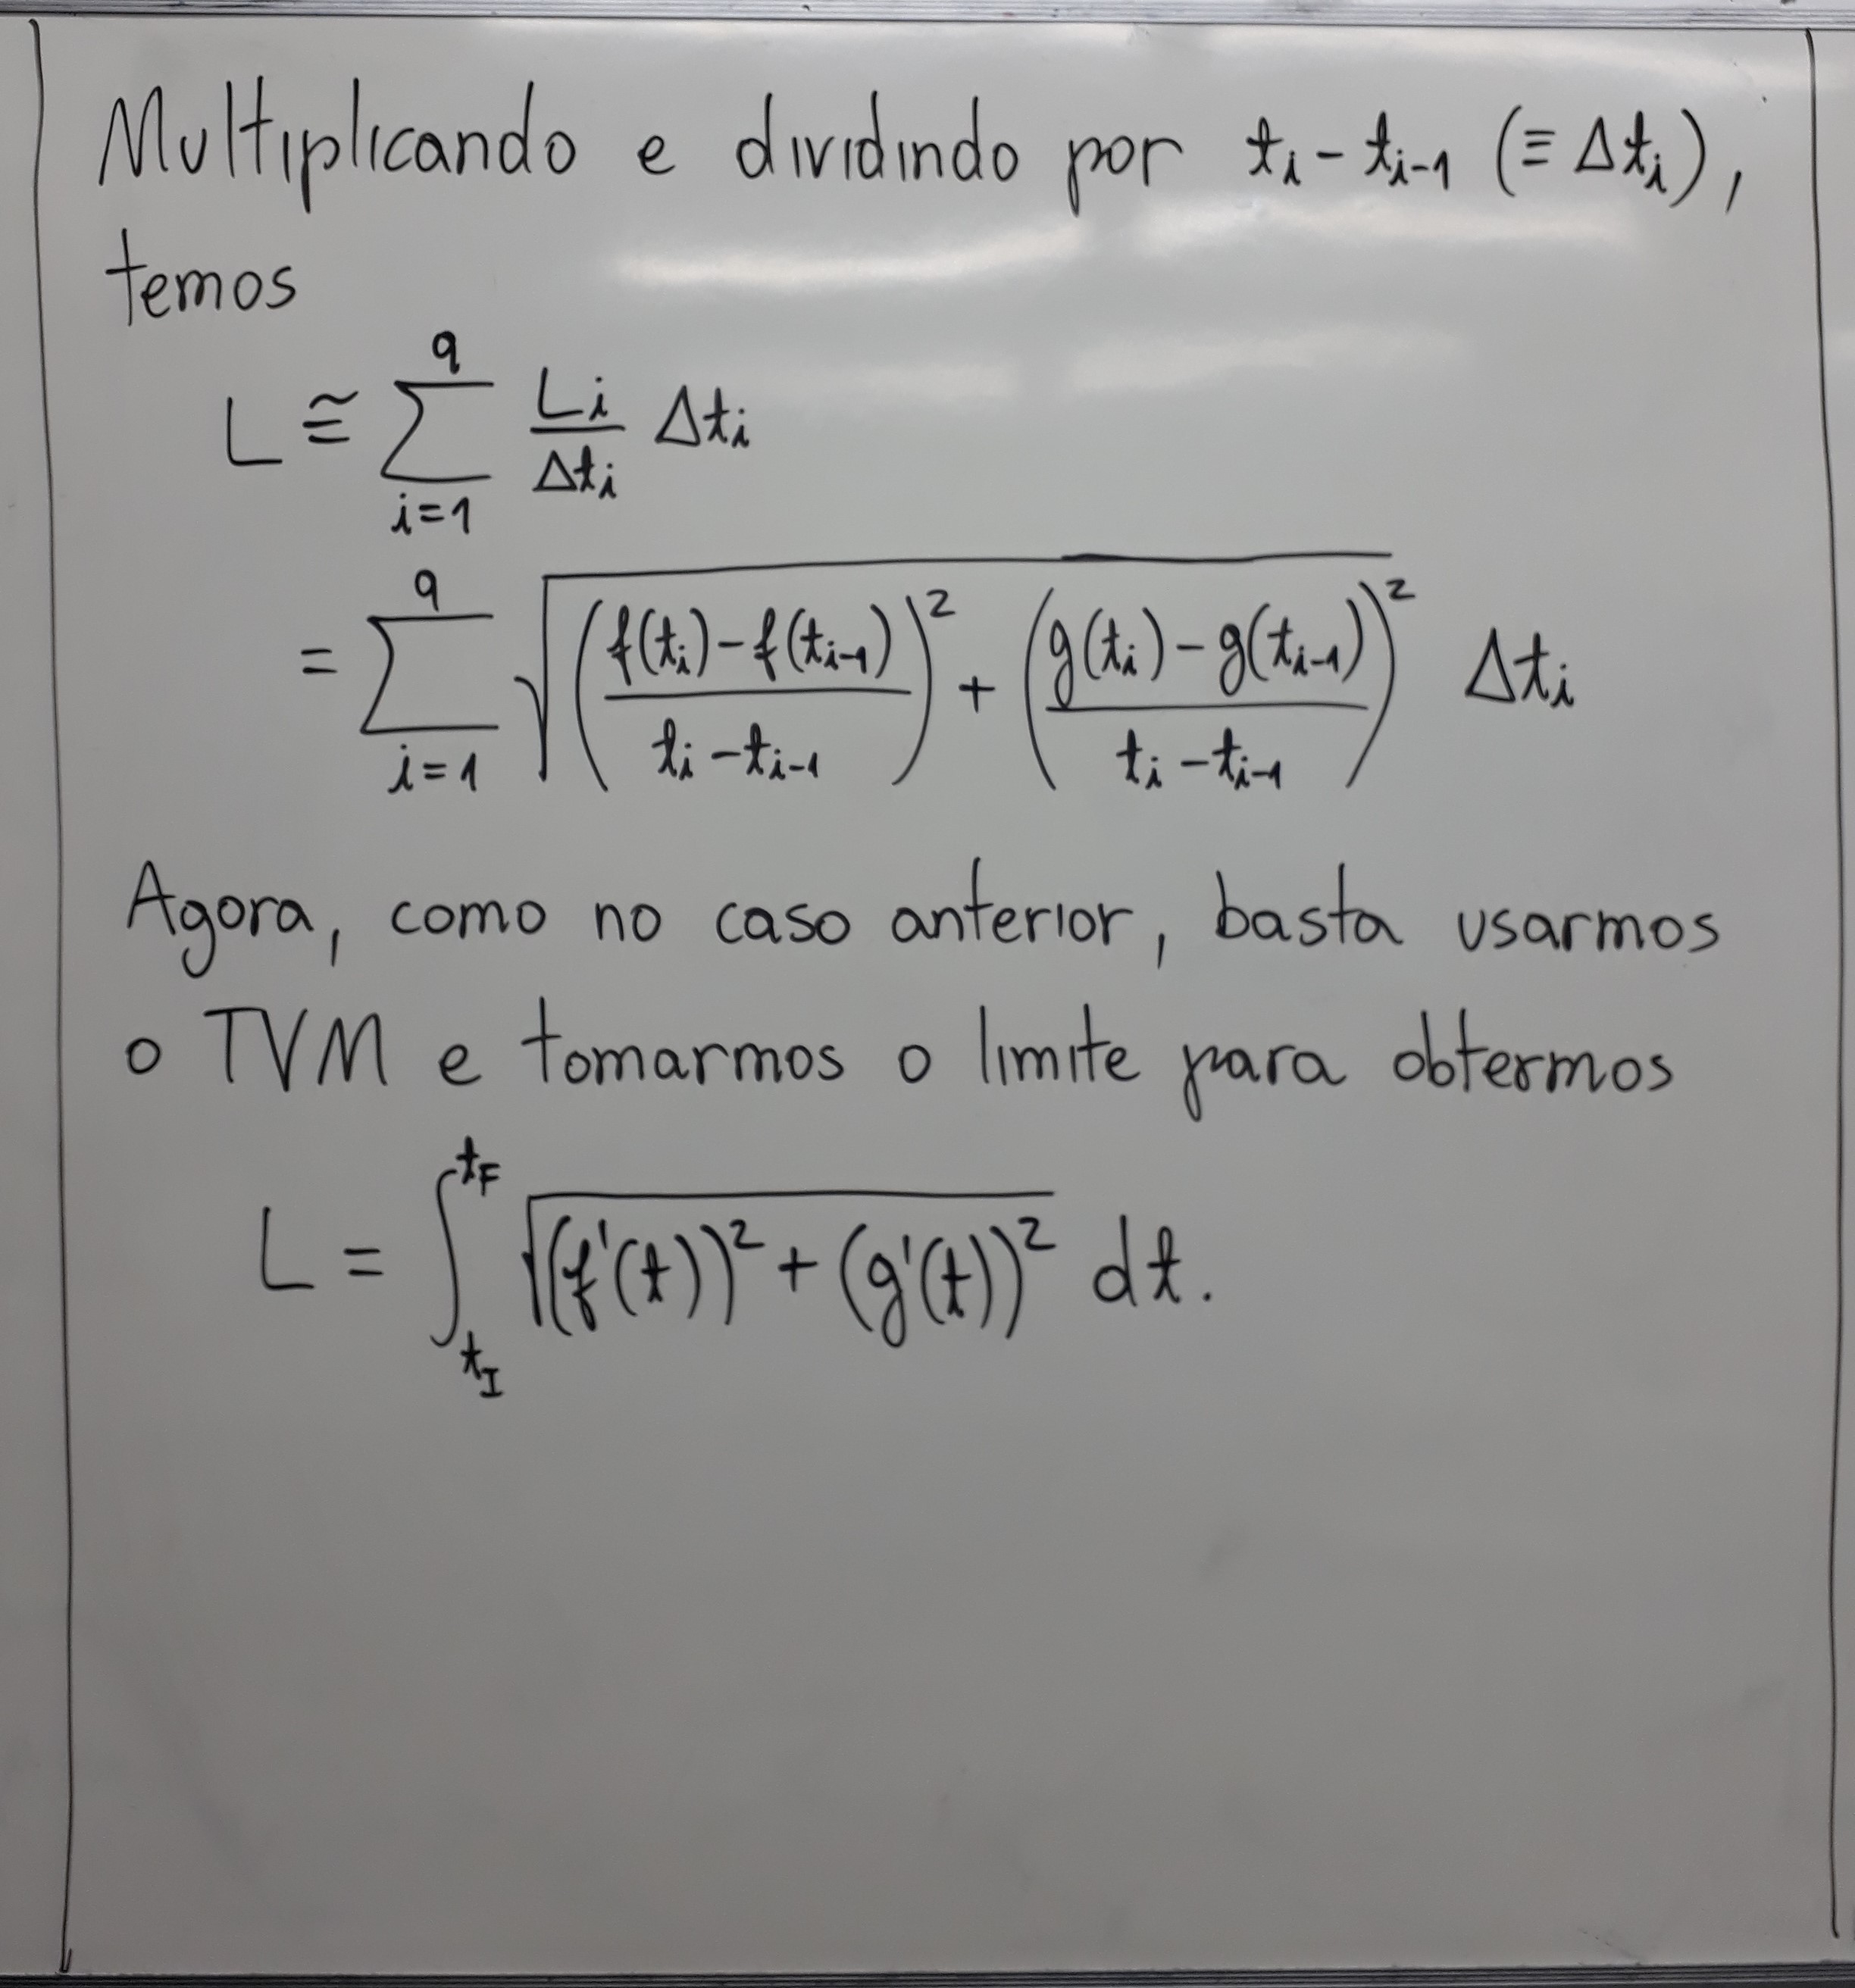 Multiplicando e dividindo por tᵢ - tᵢ₋₁ (≡ Δtᵢ),
temos
L ≅ ∑_{i=1}^{q} \frac{Lᵢ}{Δtᵢ} Δtᵢ
= ∑_{i=1}^{q} \sqrt{\left(\frac{f(tᵢ) - f(tᵢ₋₁)}{tᵢ - tᵢ₋₁}\right)^2 + \left(\frac{g(tᵢ) - g(tᵢ₋₁)}{tᵢ - tᵢ₋₁}\right)^2} Δtᵢ
Agora, como no caso anterior, basta usarmos
o TVM e tomarmos o limite para obtermos
L = ∫_{t_I}^{t_F} \sqrt{(f'(t))^2 + (g'(t))^2} dt.